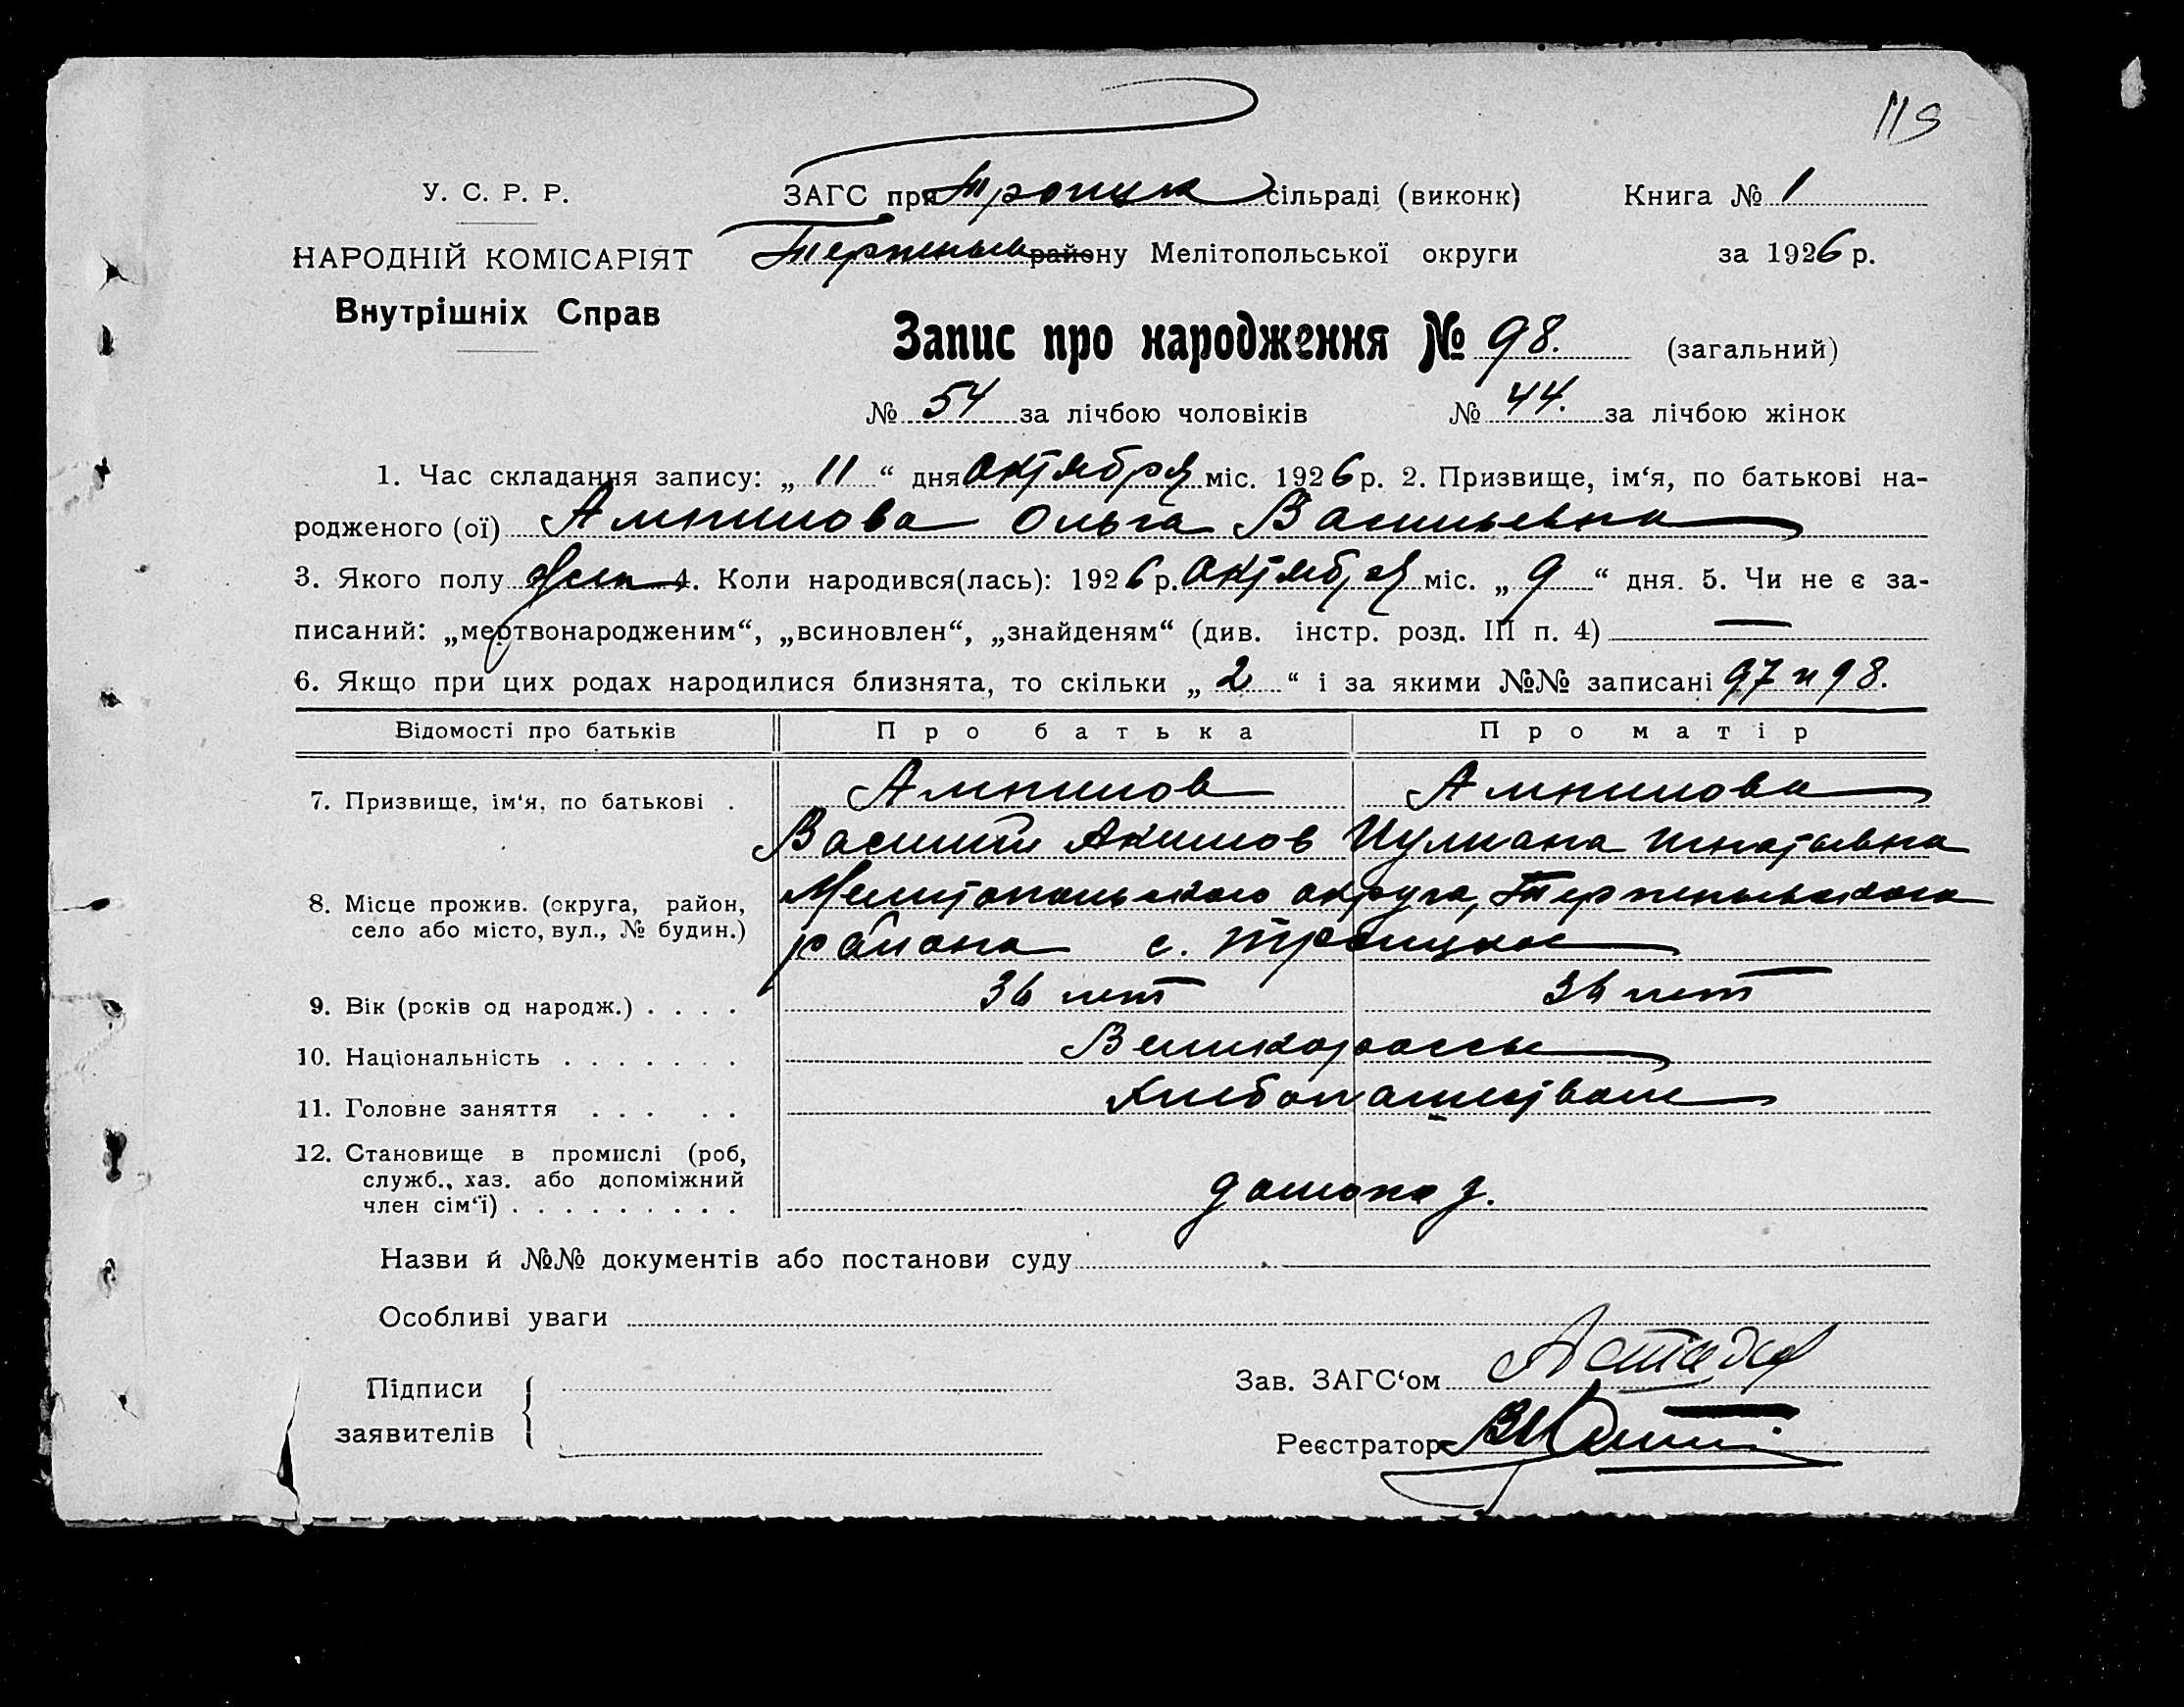 119
У. С. Р. Р.
ЗАГС при Троицк сільраді (виконк)
Книга № 1
НАРОДНІЙ КОМІСАРІЯТ
Терпеньев району Мелітопольської округи
за 1926 р.
Внутрішніх Справ
Запис про народження № 98. (загальний)
№ 54 за лічбою чоловіків № 44. за лічбою жінок
1. Час складання запису: „ 11 “ дня Октября міс. 1926 р. 2. Призвище, ім‘я, по батькові на-
родженого (ої) Ампилова Ольга Васильевна
3. Якого полу жен 4. Коли народився(лась): 1926 р. Октября міс. „ 9 “ дня. 5. Чи не є за-
писаний: „мертвонародженим“, „всиновлен“, „знайденям“ (див. інстр. розд. III п. 4) —
6. Якщо при цих родах народилися близнята, то скільки „ 2 “ і за якими №№ записані 97 и 98.
Відомості про батьків Про батька Про матір
7. Призвище, ім‘я, по батькові . Ампилов Ампилова
Василий Акимов Иулиана Игнатьевна
8. Місце прожив. (округа, район, село або місто, вул., № будин.) Мелитопольского округа, Терпеньевского
района с. Троицкое
9. Вік (років од народж.) . . . . 36 лет 36 лет
10. Національність . . . . . . . Великороссы
11. Головне заняття . . . . . Хлебопашество
12. Становище в промислі (роб,
служб., хаз. або допоміжний
член сім‘ї) . . . . . . . . . домохоз.
Назви й №№ документів або постанови суду
Особливі уваги
Підписи
заявителів
Зав. ЗАГС‘ом
Реєстратор